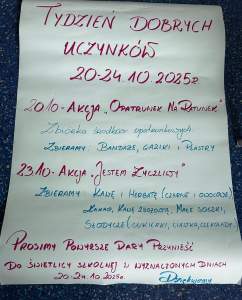 TYDZIEŃ DOBRYCH
UCZYNKÓW
20-24.10.2025r
20.10 - AKCJA „OPATRUNEK NA RATUNEK”
Zbiórka środków opatrunkowych.
ZBIERAMY: BANDAŻE, GAZIKI i PLASTRY
23.10 - AKCJA „JESTEM ŻYCZLIWY”
ZBIERAMY: KAWĘ i HERBATĘ (CZARNE i OWOCOWE)
KAKAO, KAWĘ ZBOŻOWĄ, MAŁE SOCZKI,
SŁODYCZE (CUKIERKI, CIASTKA, CZEKOLADY)
PROSIMY POWYŻSZE DARY PRZYNIEŚĆ
DO ŚWIETLICY SZKOLNEJ W WYZNACZONYCH DNIACH
20-24.10.2025r
Dziękujemy